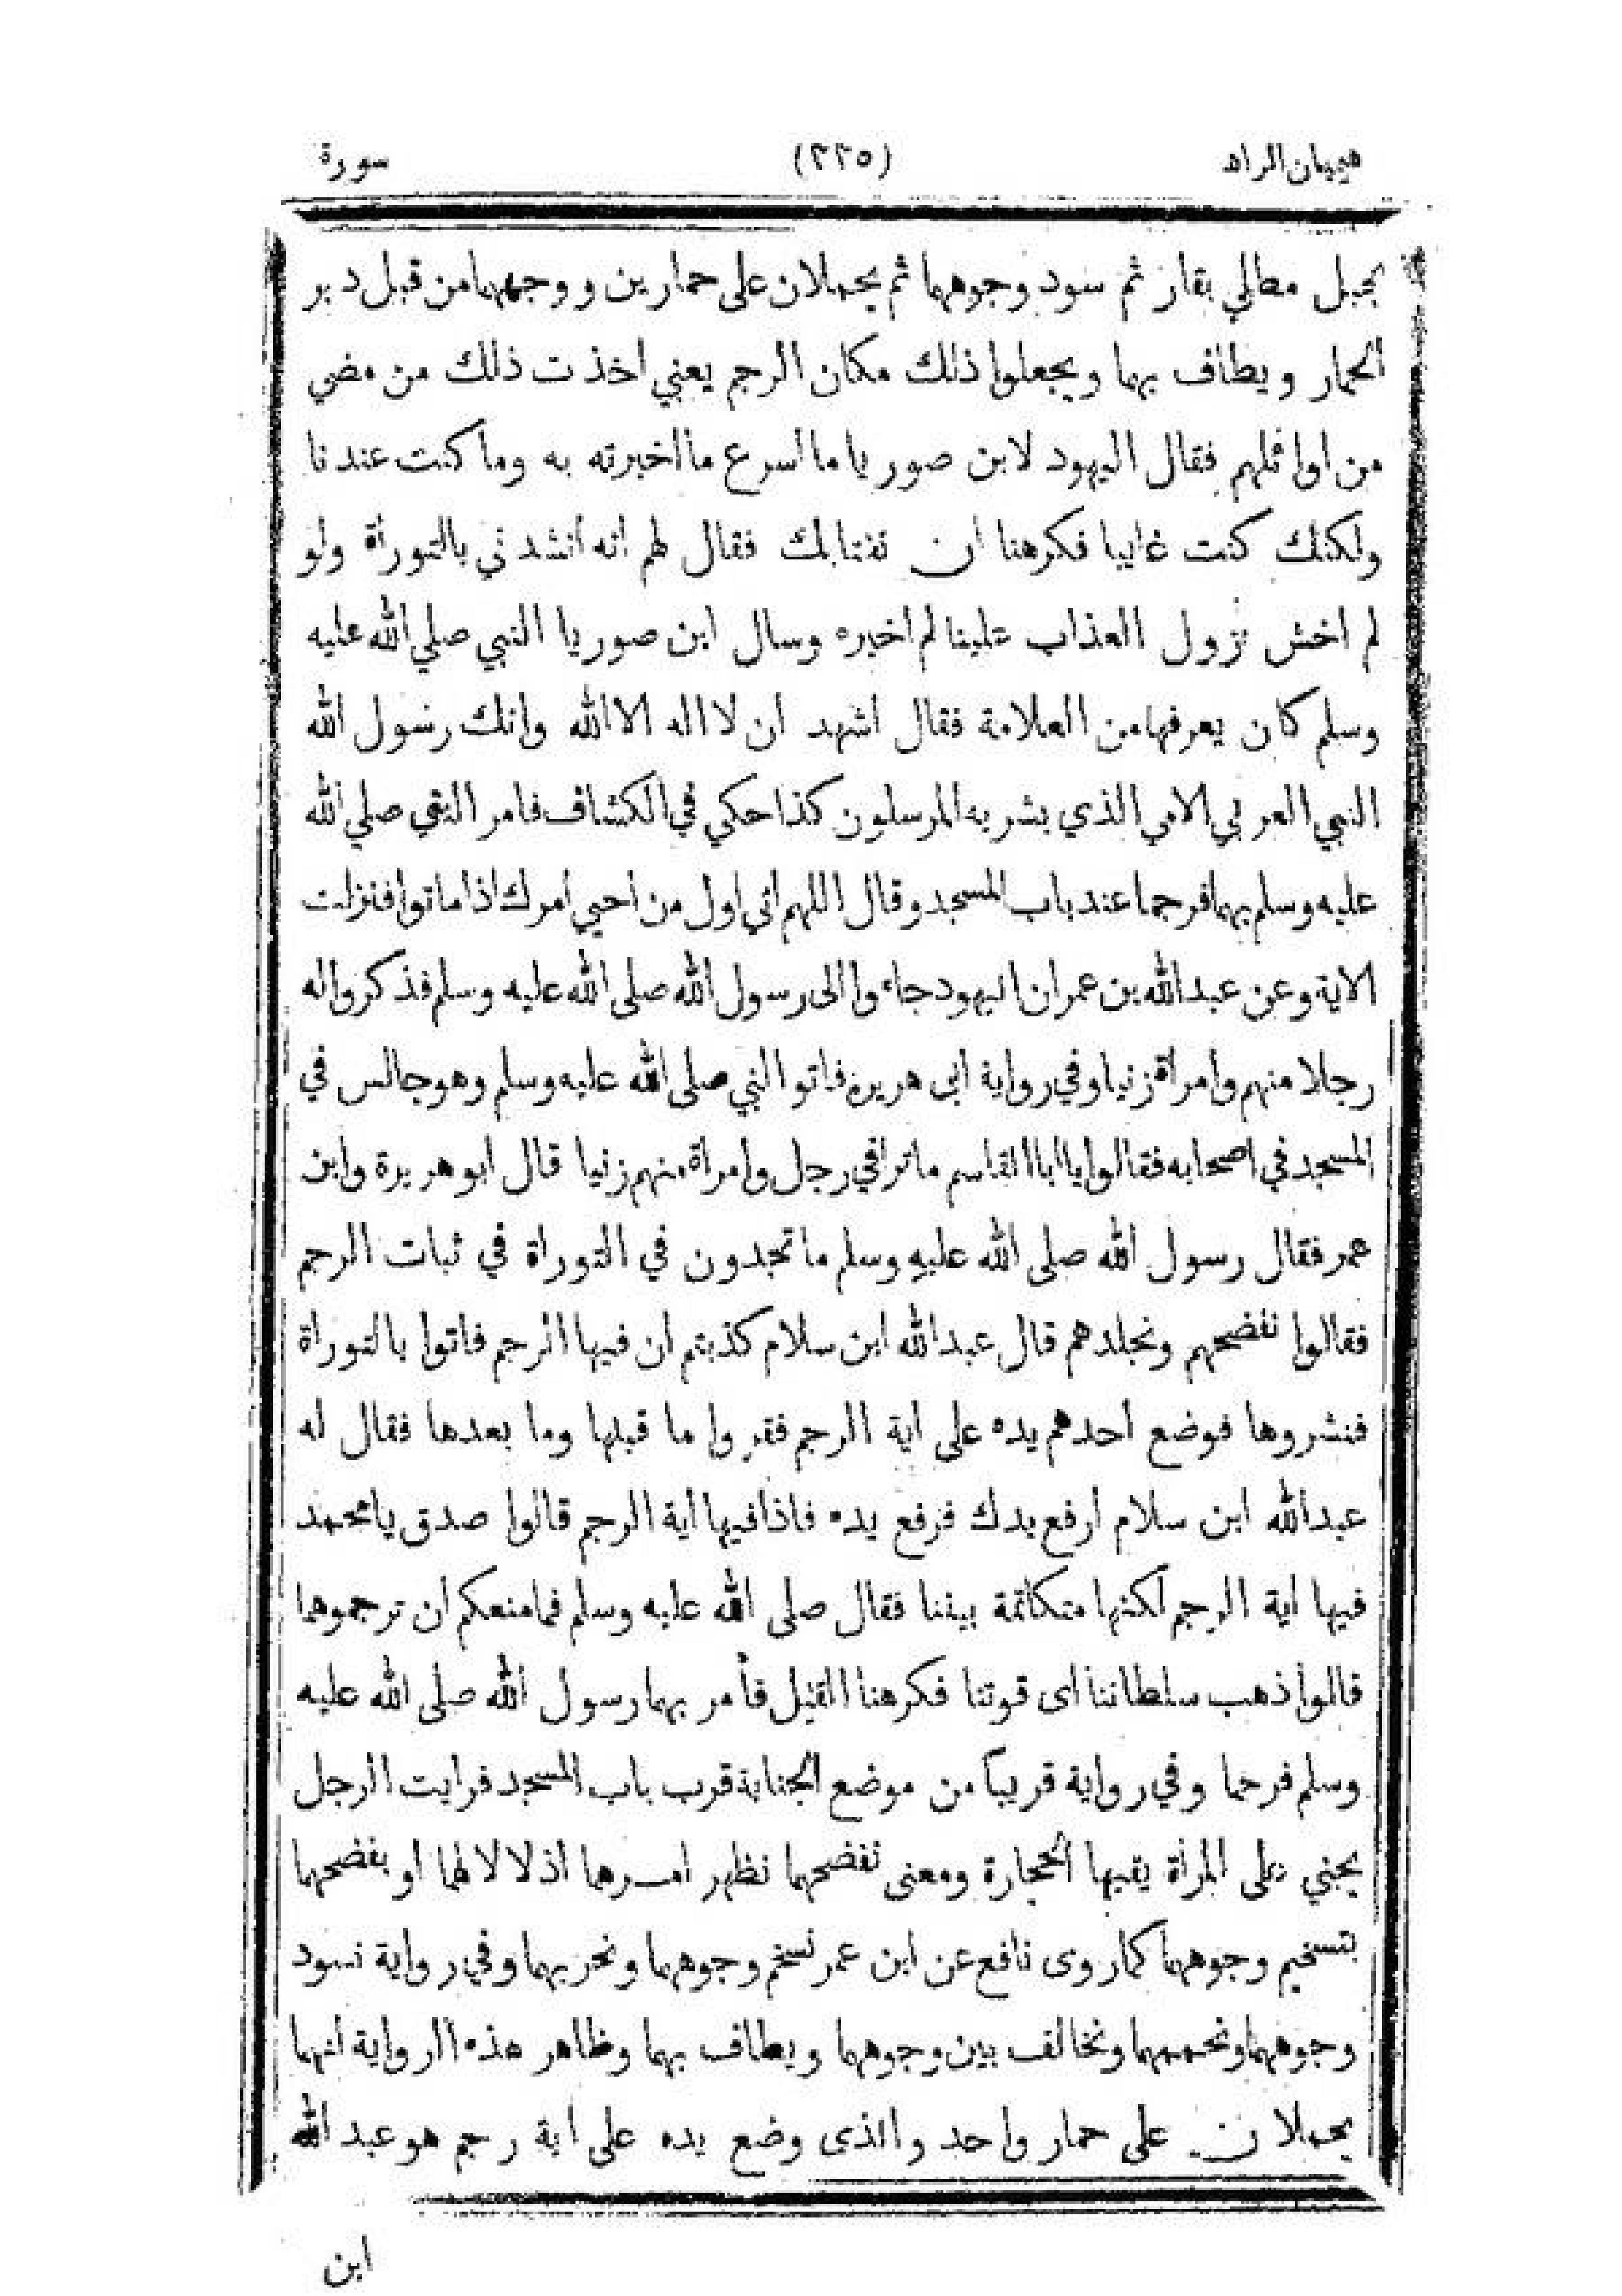 هميان الزاد (٢٢٥) سورة
بحبل مطلي بقار ثم سود وجوههما ثم يحملان على حمارين ووجههما من قبل دبر
الحمار ويطاف بهما ويجعلوا ذلك مكان الرجم يعني اخذت ذلك من مضي
من اوائلهم فقال اليهود لابن صوريا ما اسرع ما اخبرته به وما كنت عندنا
ولكنك كنت غايبا فكرهنا ان نغتابك فقال لهم انه انشدني بالتوراة ولو
لم اخش نزول العذاب علينا لم اخبره وسال ابن صوريا النبي صلي الله عليه
وسلم كان يعرفها من العلامة فقال اشهد ان لا اله الا الله وانك رسول الله
النبي العربي الامي الذي بشر به المرسلون كذا حكي في الكشاف فامر النبي صلي الله
عليه وسلم بهما فرجما عند باب المسجد وقال اللهم اني اول من احيي امرك اذ اماتوا فنزلت
الاية وعن عبد الله بن عمران اليهود جاءوا الى رسول الله صلى الله عليه وسلم فذكروا له
رجلا منهم وامرأة زنيا وفي رواية ابى هريره فاتوا النبي صلى الله عليه وسلم وهو جالس في
المسجد في اصحابه فقالوا يا ابا القاسم ما ترا في رجل وامرأة منهم زنيا قال ابو هريرة وابن
عمر فقال رسول الله صلى الله عليه وسلم ما تجدون في التوراة في ثبات الرجم
فقالوا نفضحهم ونجلدهم قال عبد الله ابن سلام كذبتم ان فيها الرجم فاتوا بالتوراة
فنشروها فوضع أحدهم يده على اية الرجم فقروا ما قبلها وما بعدها فقال له
عبد الله ابن سلام ارفع يدك فرفع يده فاذا فيها أية الرجم قالوا صدق يا محمد
فيها اية الرجم لكنها متكاتمة بيننا فقال صلى الله عليه وسلم فما منعكم ان ترجموهما
قالوا ذهب سلطاننا اى قوتنا فكرهنا القتل فأمر بهما رسول الله صلى الله عليه
وسلم فرجما وفي رواية قريبا من موضع الجنابة قرب باب المسجد فرايت الرجل
يجني على المرأة يقيها الحجارة ومعنى نفضحهما نظهر امرهما اذلالا لهما او بفضحهما
بتسخيم وجوههما كما روى نافع عن ابن عمر نسخم وجوههما ونخزيهما وفي رواية نسود
وجوههما ونحممهما ونخالف بين وجوههما ويطاف بهما وظاهر هذه الرواية انهما
يحملان على حمار واحد والذى وضع يده على اية رجم هو عبد الله
ابن